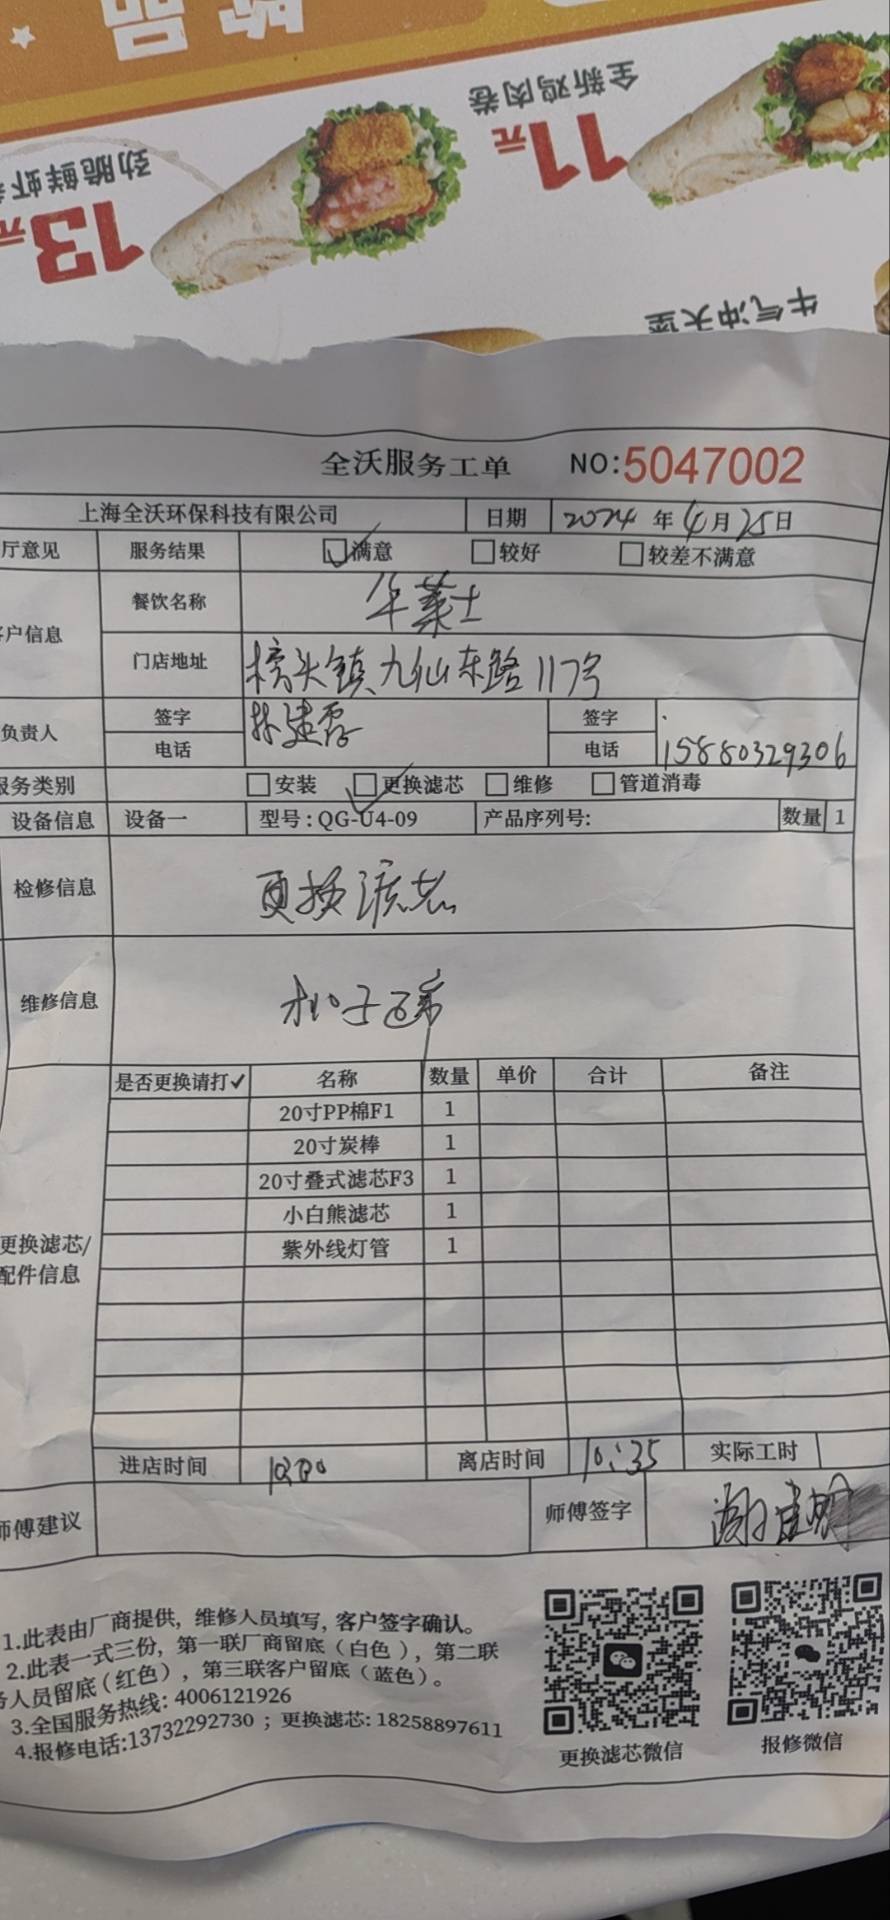 全新鸡肉卷
11元
劲脆鲜虾
13元
牛气冲天堡
全沃服务工单 NO:5047002
上海全沃环保科技有限公司 日期 2024年4月25日
厅意见 服务结果 满意 较好 较差不满意
户信息 餐饮名称 华莱士
门店地址 榜头镇九仙东路117号
负责人 签字 签字
电话 电话 15880329306
服务类别 安装 更换滤芯 维修 管道消毒
设备信息 设备一 型号:QG-U4-09 产品序列号: 数量 1
检修信息 更换滤芯
维修信息
是否更换请打✓ 名称 数量 单价 合计 备注
更换滤芯/配件信息
20寸PP棉F1 1
20寸炭棒 1
20寸叠式滤芯F3 1
小白熊滤芯 1
紫外线灯管 1
进店时间 离店时间 10:35 实际工时
师傅建议 师傅签字
1.此表由厂商提供, 维修人员填写, 客户签字确认。
2.此表一式三份, 第一联厂商留底(白色), 第二联
务人员留底(红色), 第三联客户留底(蓝色)。
3.全国服务热线: 4006121926
4.报修电话:13732292730 ; 更换滤芯: 18258897611
更换滤芯微信 报修微信